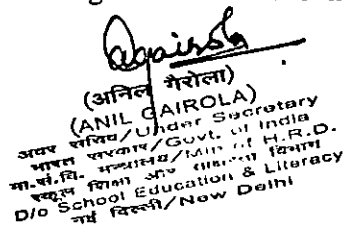 Agairola
(अनिल गैरोला)
(ANIL GAIROLA)
अवर सचिव/Under Secretary
भारत सरकार/Govt. of India
मा.सं.वि. मन्त्रालय/Min of H.R.D.
स्कूल शिक्षा और विभाग
D/o School Education & Literacy
नई दिल्ली/New Delhi